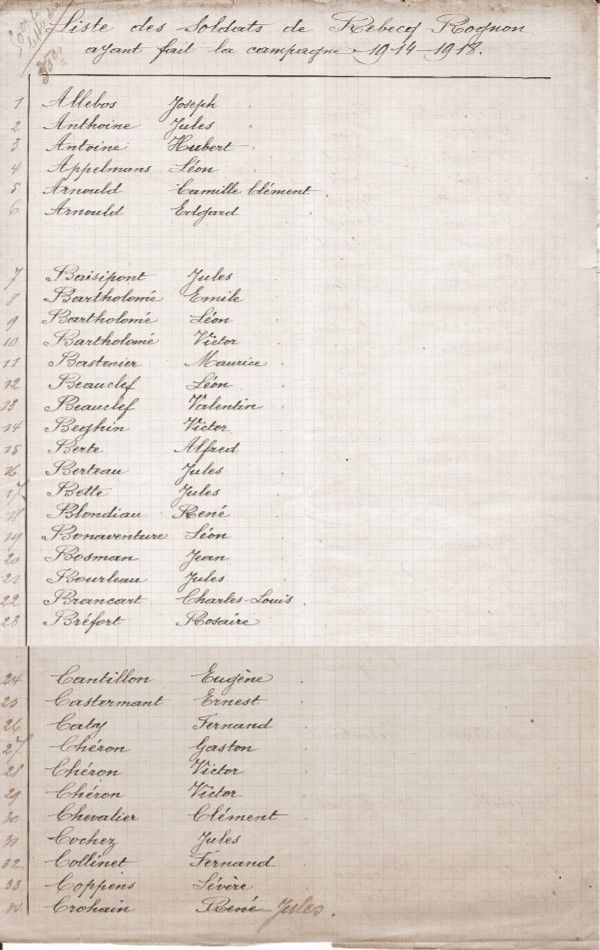 Liste des Soldats de Rebecq Rognon
ayant fait la campagne 1914-1918.
1 Allebos Joseph
2 Anthoine Jules
3 Antoine Hubert
4 Appelmans Léon
5 Arnould Camille Clément
6 Arnould Edgard
7 Baisipont Jules
8 Bartholomé Emile
9 Bartholomé Léon
10 Bartholomé Victor
11 Bastenier Maurice
12 Beauclef Léon
13 Beauclef Valentin
14 Beghin Victor
15 Berte Alfred
16 Berteau Jules
17 Bette Jules
18 Blondiau René
19 Bonaventure Léon
20 Bosman Jean
21 Bourleau Jules
22 Brancart Charles-Louis.
23 Bréfort Rosaire
24 Cantillon Eugène
25 Castermant Ernest
26 Caty Fernand
27 Chéron Gaston
28 Chéron Victor
29 Chéron Victor
30 Chevalier Clément
31 Cochez Jules
32 Collinet Fernand
33 Coppens Sévère
34 Crohain René Jules.